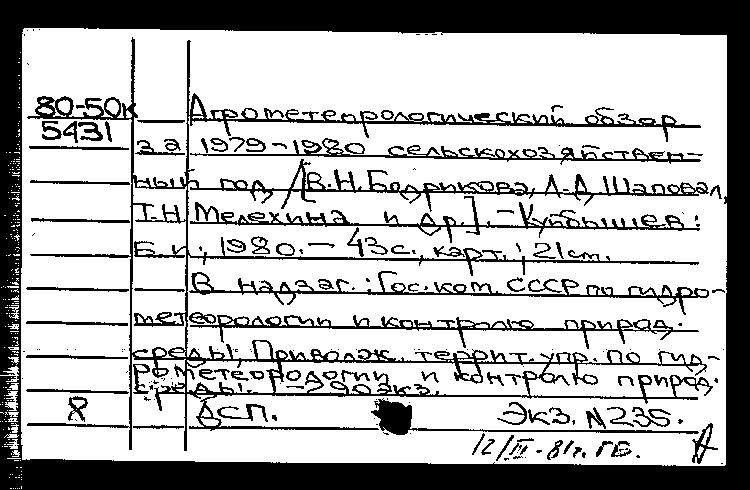 80-50к
5431
Агрометеорологический обзор
за 1979-1980 сельскохозяйствен-
ный год / [В.Н. Бодрикова, Л.Д. Шаповал,
Т.Н. Мелехина и др.]. - Куйбышев:
Б.и., 1980. - 43 с., карт.; 21 см.
В надзаг.: Гос. ком. СССР по гидро-
метеорологии и контролю природ.
среды, Приволж. террит. упр. по гид-
рометеорологии и контролю природ.
среды. - 290 экз.
ДСП. Экз. N 235.
12/III-81г. ГБ.